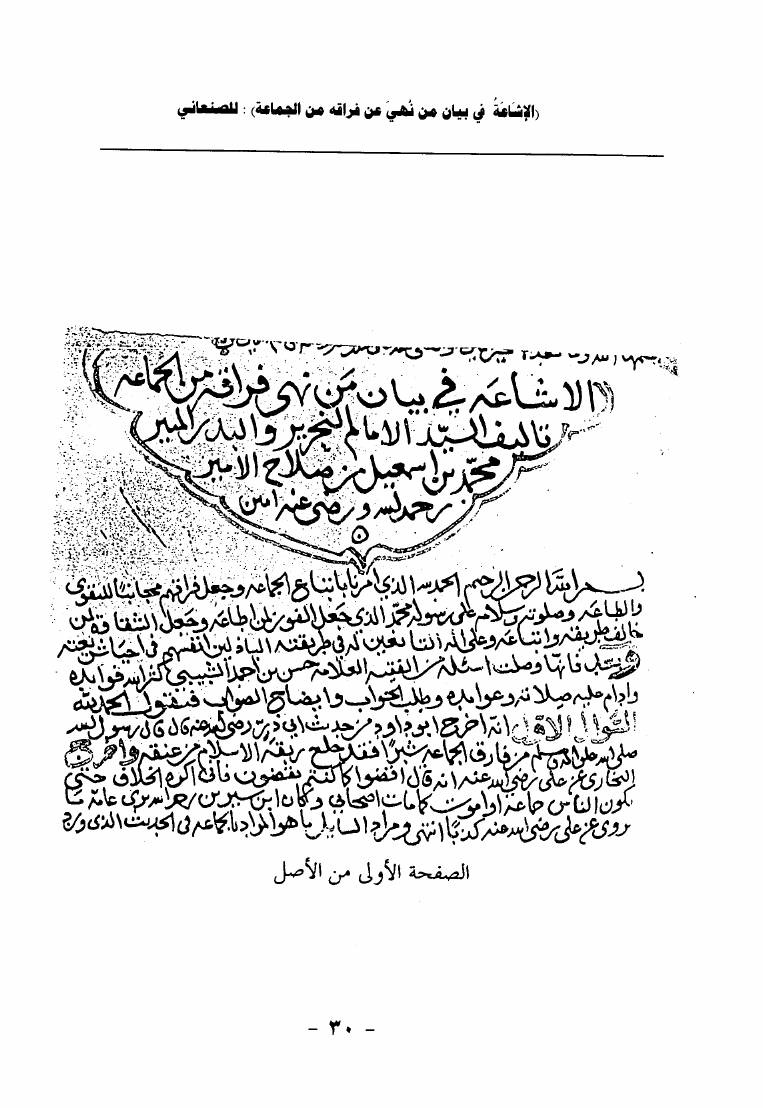 (الإشَاعَةُ في بيان من نُهيَ عن فراقه من الجماعة) : للصنعاني
الاشاعه في بيان من نهي فراقه من الجماعه
تاليف السيد الامام النحرير والبدر المنير
محمد بن اسمعيل بن صلاح الامير
رحمه الله ورضي عنه امين
بسم الله الرحمن الرحيم الحمد لله الذي امرنا باتباع الجماعه وجعل فراقهم مجانبا للتقوى
والطاعه وصلوته وسلامه على رسوله محمد الذي جعل الفوز لمن اطاعه وجعل الشقاوة لمن
خالف طريقه واتباعه وعلى اله التابعين له في طريقته الباذلين انفسهم في احيا شريعته
وبعد فانها وصلت اسئلة من الفقيه العلامه حسن بن احمد الشبيبي كثر الله فوايده
وادام عليه صلاته وعوايده وطلب الجواب وايضاح الصواب فنقول الحمد لله
السوال الاول انه اخرج ابو داود من حديث ابي ذر رضي الله عنه قال قال رسول الله
صلى الله عليه واله وسلم من فارق الجماعه شبرا فقد خلع ربقة الاسلام من عنقه واخرج
البخاري عن علي رضي الله عنه انه قال اقضوا كما كنتم تقضون فاني اكره الخلاف حتى
يكون الناس جماعه او اموت كما مات اصحابي وكان ابن سيرين رحمه الله يرى عامة ما
يروى عن علي رضي الله عنه كذبا انتهى ومراد السايل ما هو المراد بالجماعه في الحديث الذي ورد
الصفحة الأولى من الأصل
- ٣٠ -